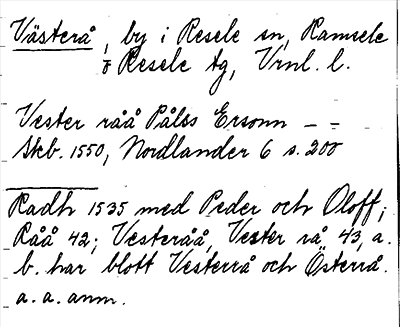 Västerå, by i Resele sn, Ramsele
& Resele tg, Vrnl. l.
Vester råå Pålss Ersonn – –
Skb. 1550, Nordlander 6 s. 200
Radh 1535 med Peder och Oloff;
Råå 42; Vesteråå, Vester rå 43, a.
b. har blott Vesterrå och Österrå.
a. a. anm.